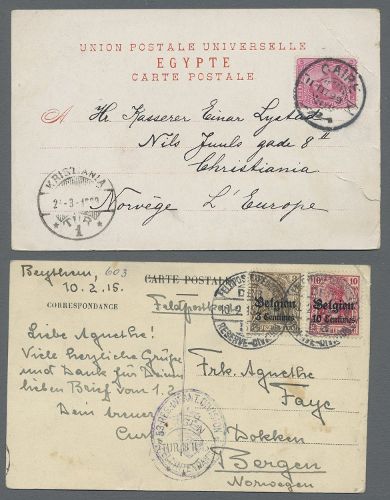 UNION POSTALE UNIVERSELLE
EGYPTE
CARTE POSTALE
CAIRE
A Hr. Kasserer Einar Lystad
Nils Juuls gade 8
Christiania
Norvège L'Europe
KRISTIANIA
1
603
10.2.15.
CARTE POSTALE
CORRESPONDANCE
Feldpostkarte
Belgien
3 Centimes
Belgien
10 Centimes
10
10
Liebe Agnethe!
Viele herzliche Grüße
und Dank für Deinen
lieben Brief vom 1.2.
Dein treuer
Curt
Frk. Agnethe
Faye
Dokken
Bergen
Norwegen